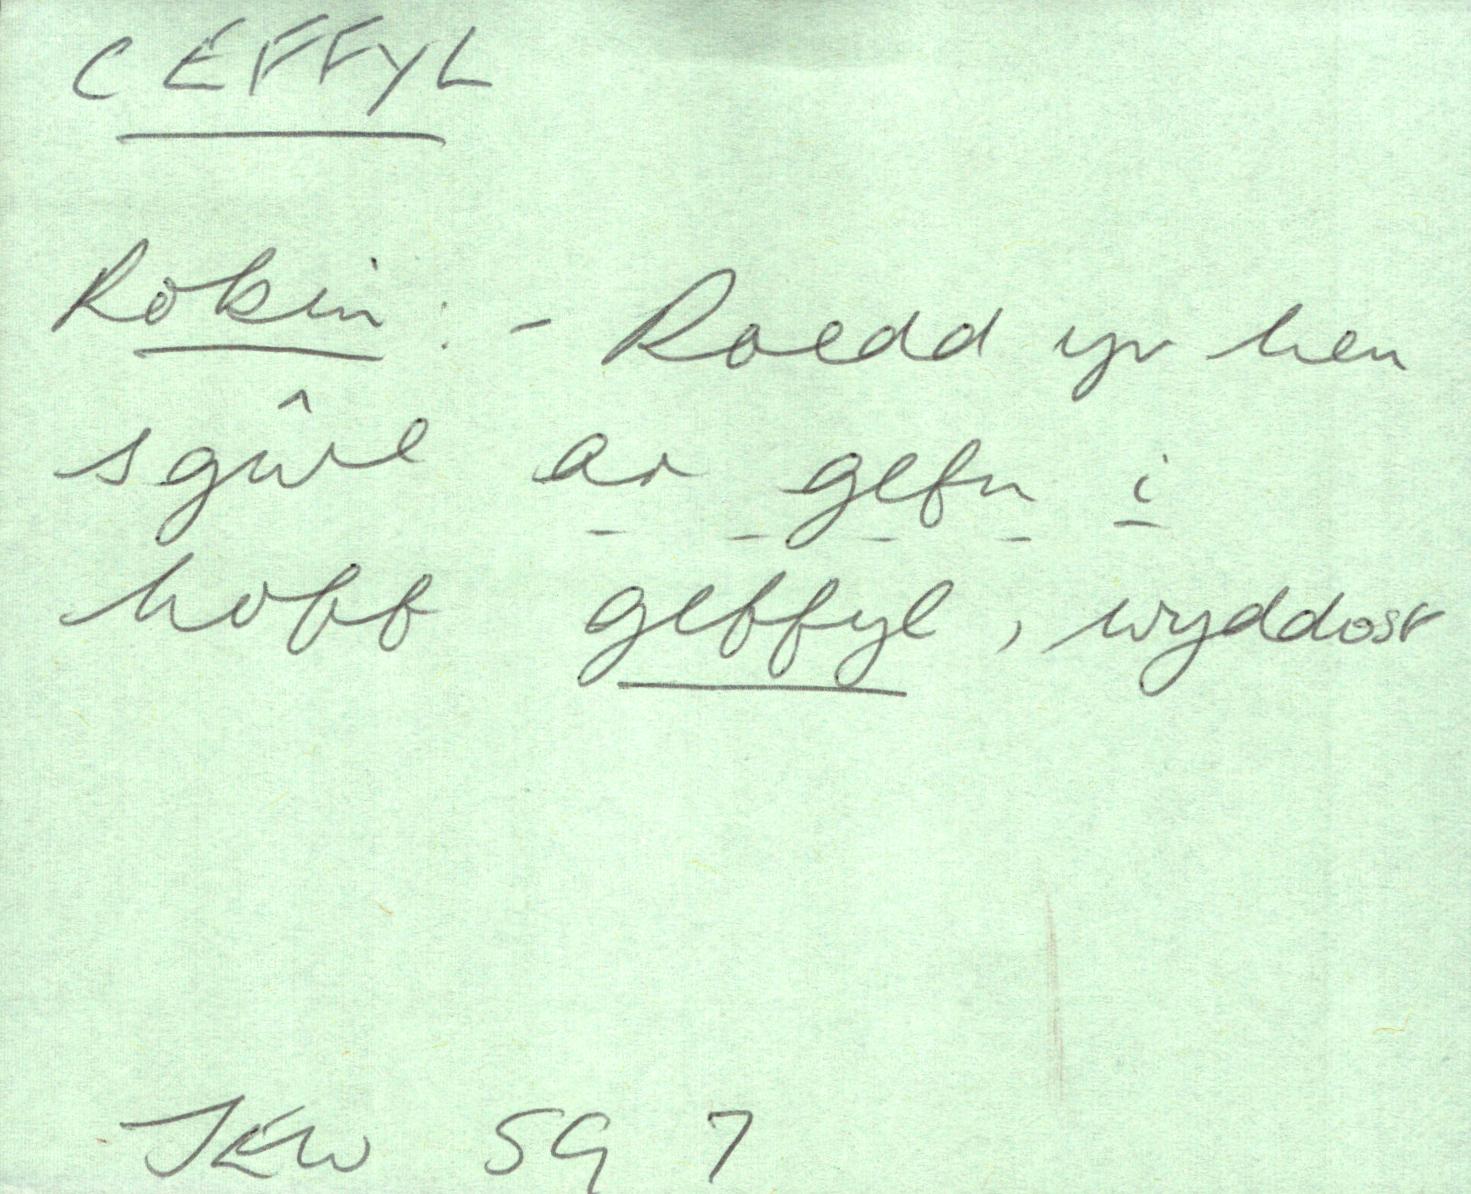 CEFFYL
Robin : - Roedd yr hen
sgŵl ar gefn i
hoff geffyl, wyddost
JEW SG 7